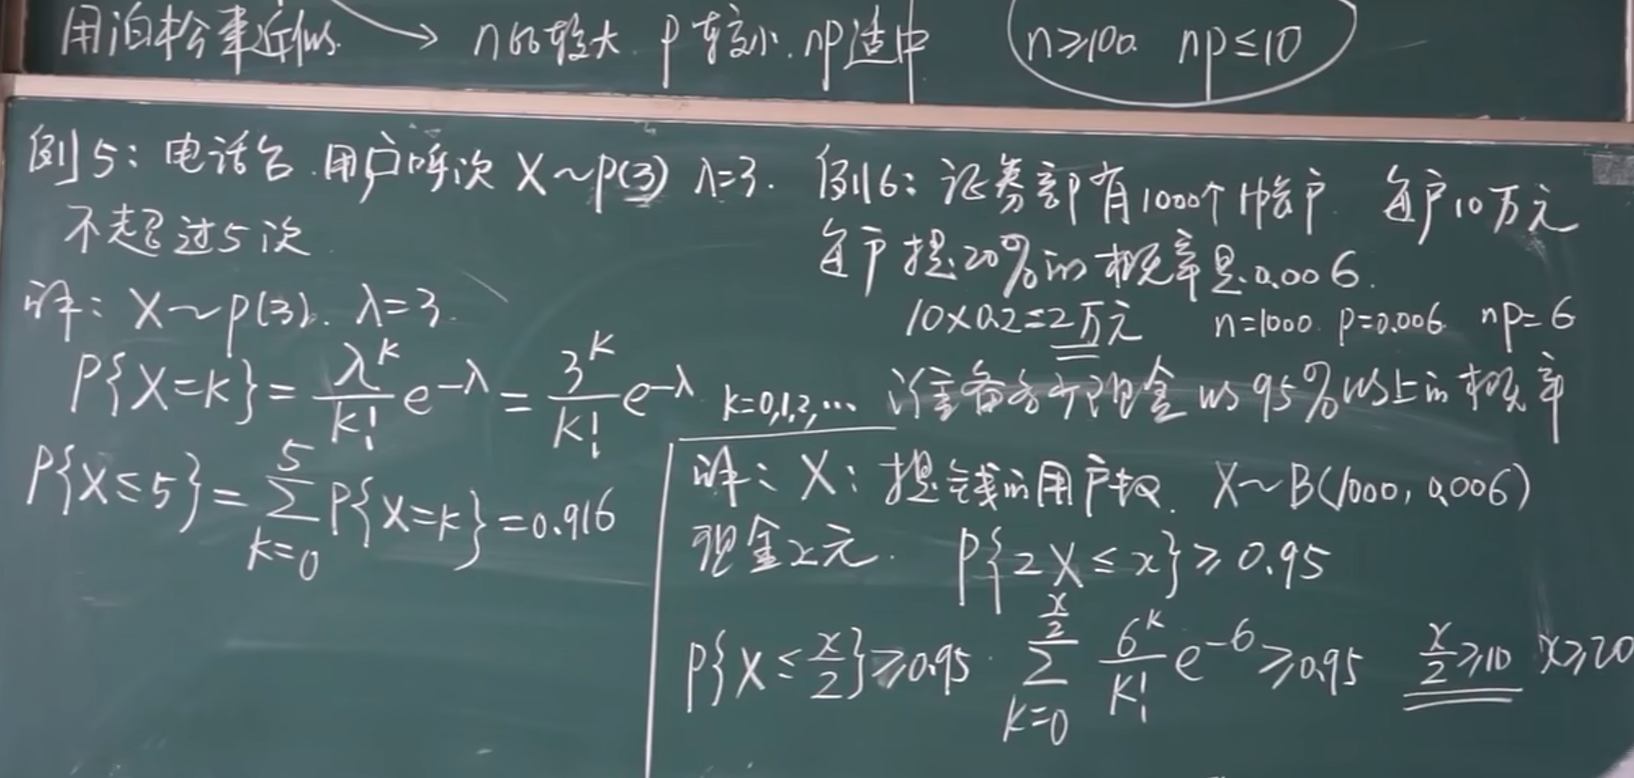 用泊松来近似 → n比较大 p较小 np适中 n≥100 np≤10
例5: 电话台 用户呼次 X~P(3) λ=3.
不超过5次
解: X~P(3). λ=3.
P{X=k}=\frac{λ^k}{k!}e^{-λ}=\frac{3^k}{k!}e^{-λ} k=0,1,2,⋯
P{X≤5}=\sum_{k=0}^{5}P{X=k}=0.916
例6: 证券部有1000个帐户 每户10万元
每户提20%的概率是0.006.
10×0.2=2万元 n=1000 p=0.006 np=6
准备多少现金 以95%以上的概率
解: X: 提钱的用户数. X~B(1000, 0.006)
现金x元. P{2X≤x}≥0.95
P{X≤\frac{x}{2}}≥0.95 \sum_{k=0}^{\frac{x}{2}}\frac{6^k}{k!}e^{-6}≥0.95 \frac{x}{2}≥10 x≥20